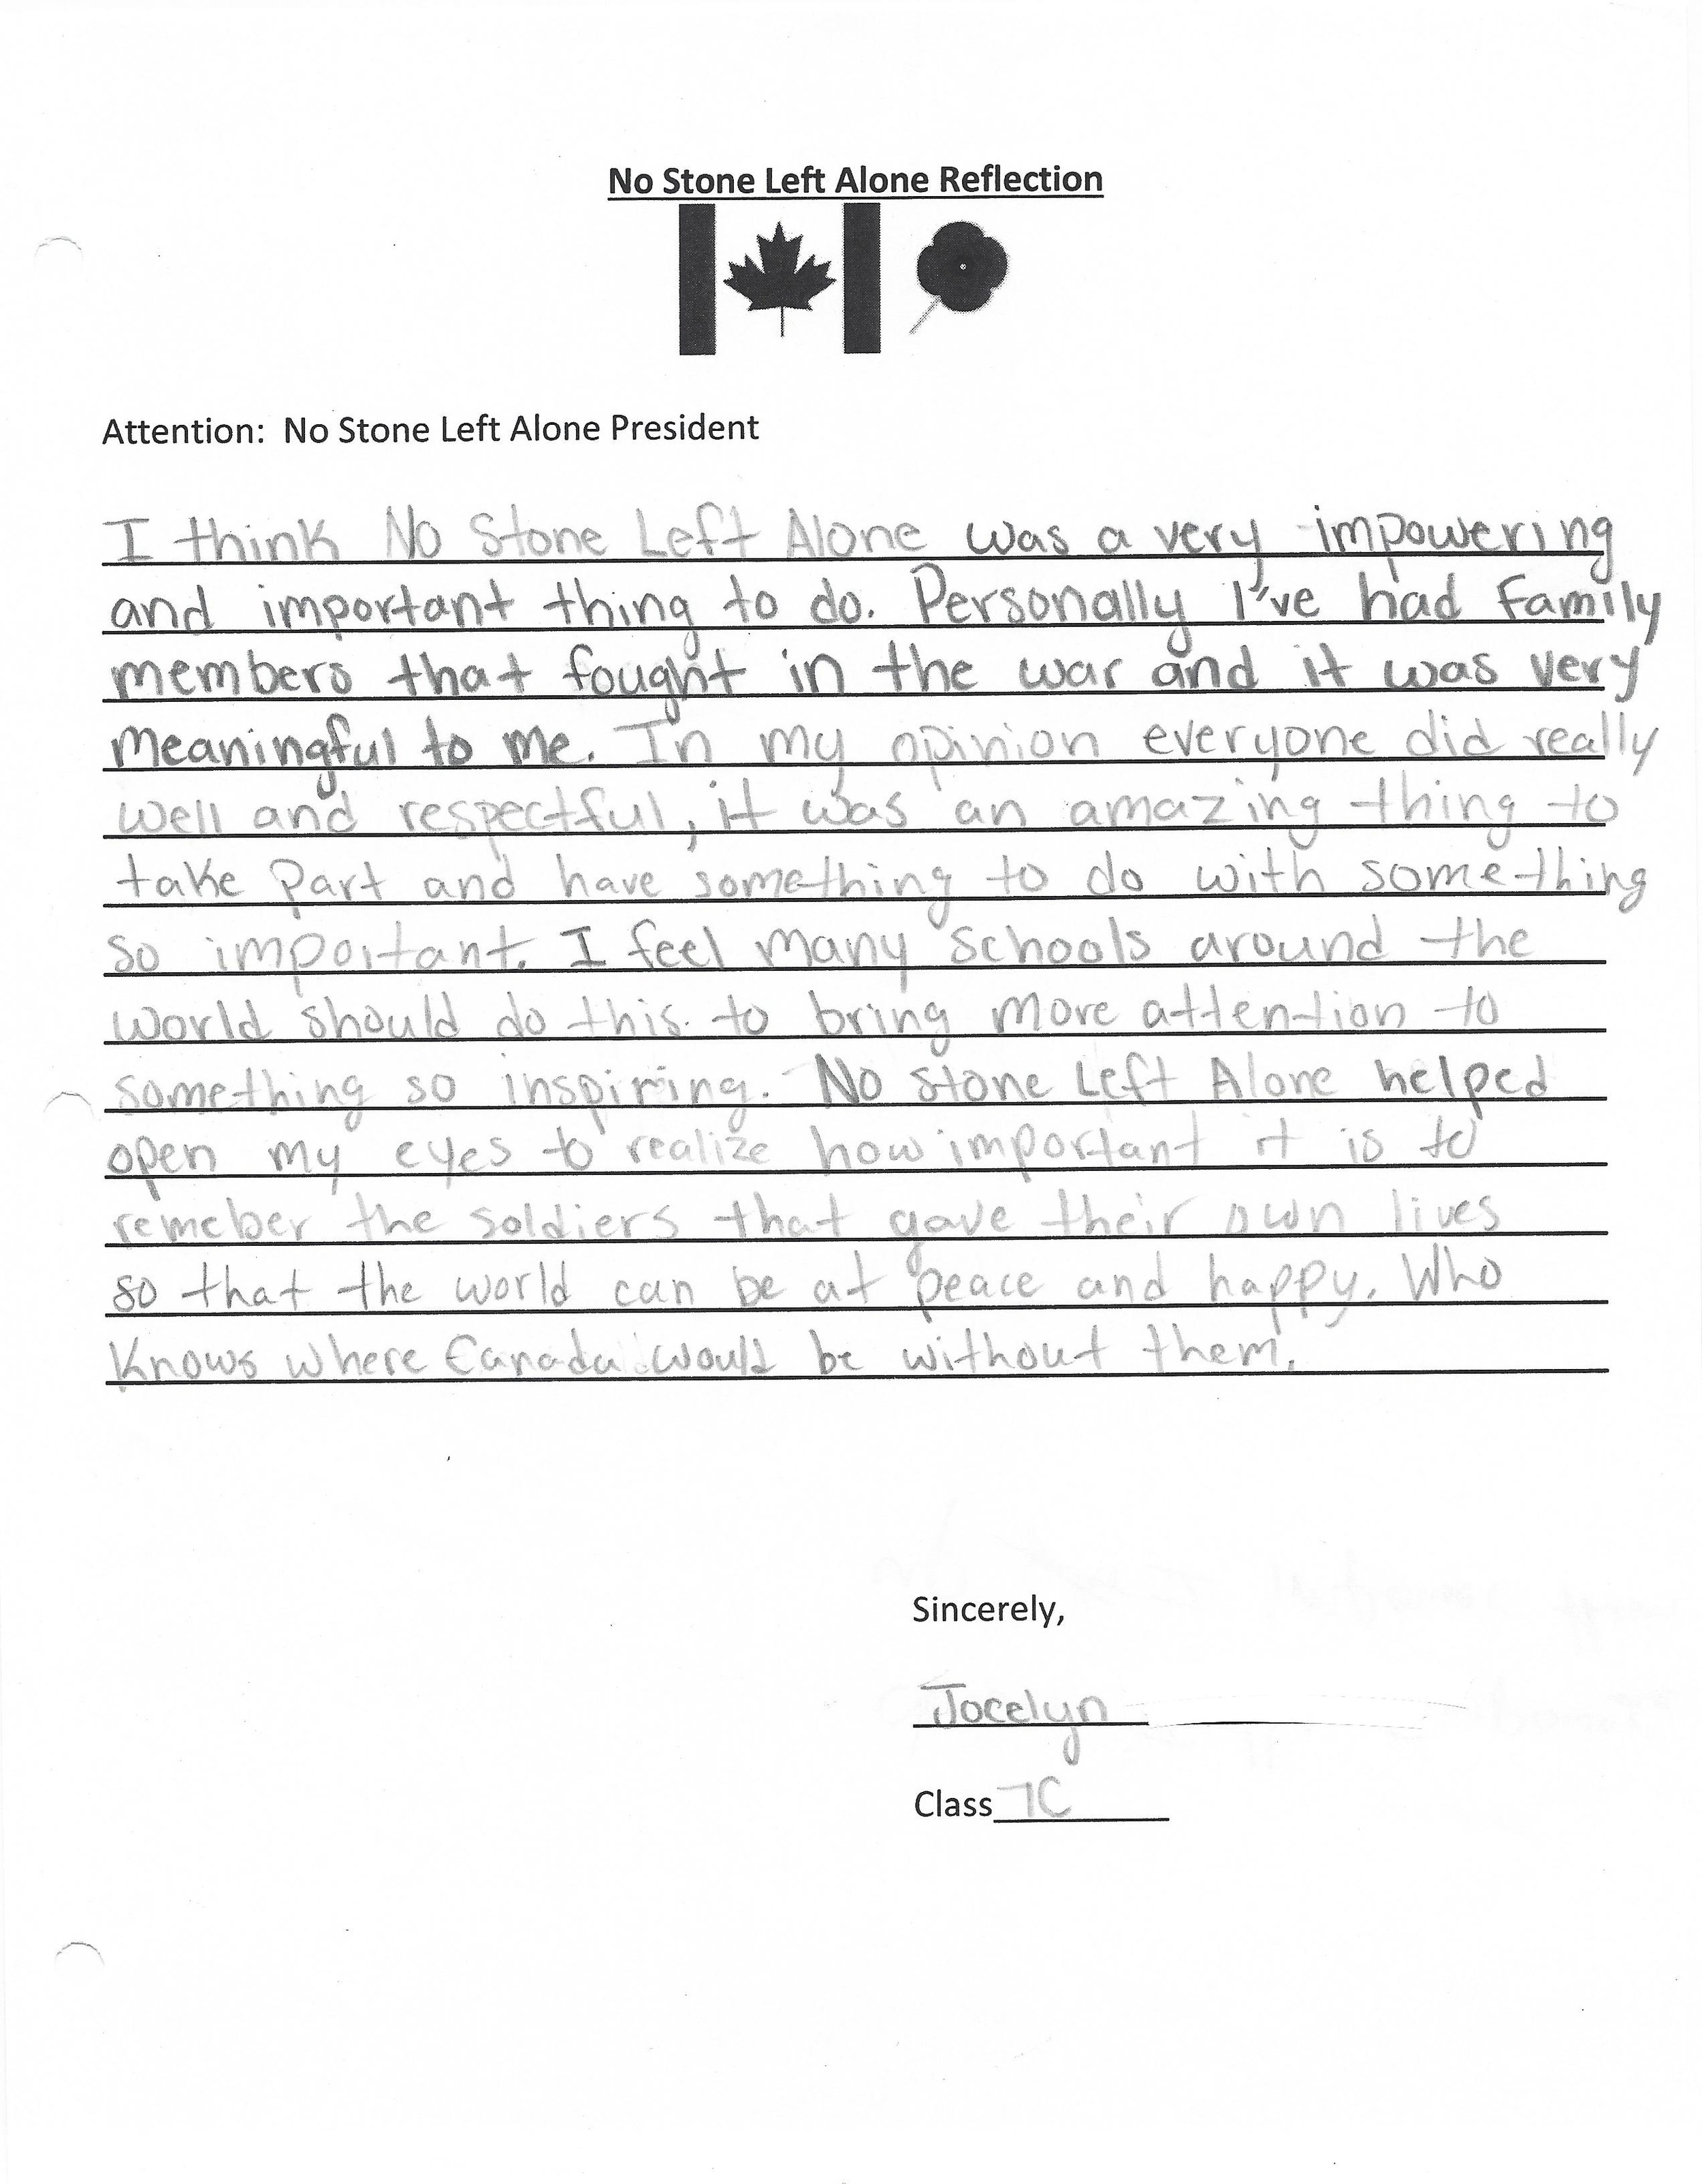 No Stone Left Alone Reflection
Attention: No Stone Left Alone President
I think No Stone Left Alone was a very impowering
and important thing to do. Personally I've had family
members that fought in the war and it was very
meaningful to me. In my opinion everyone did really
well and respectful, it was an amazing thing to
take part and have something to do with something
so important. I feel many schools around the
world should do this to bring more attention to
something so inspiring. No Stone Left Alone helped
open my eyes to realize how important it is to
remeber the soldiers that gave their own lives
so that the world can be at peace and happy. Who
knows where Canada would be without them.
Sincerely,
Jocelyn
Class 7C